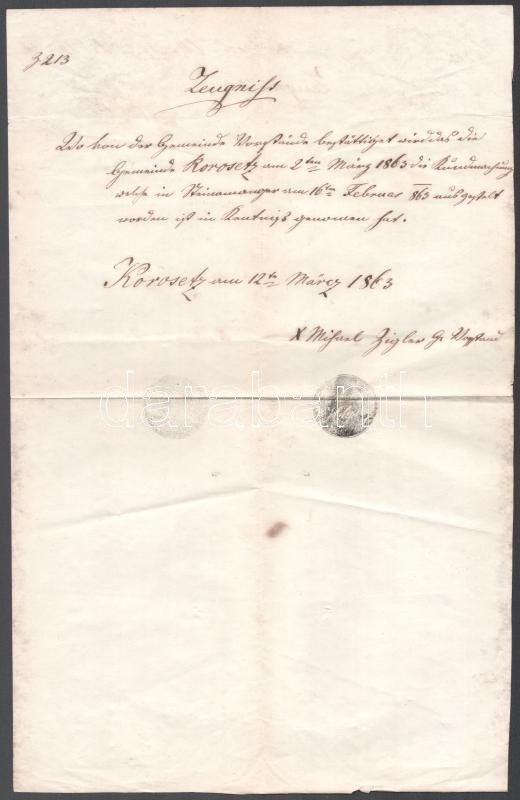 z 213
Zeugniss
Wo von der Gemeinde Vorstände bestättiget wird das die
Gemeinde Korosetz am 2ten März 1863 die Kundmachung
welche in Steinamanger am 16ten Februar 863 ausgestelt
worden ist in Kentniss genomen hat.
Korosetz am 12te Märcz 1863
X Mihael Zigler G: Vorstand
darabanth